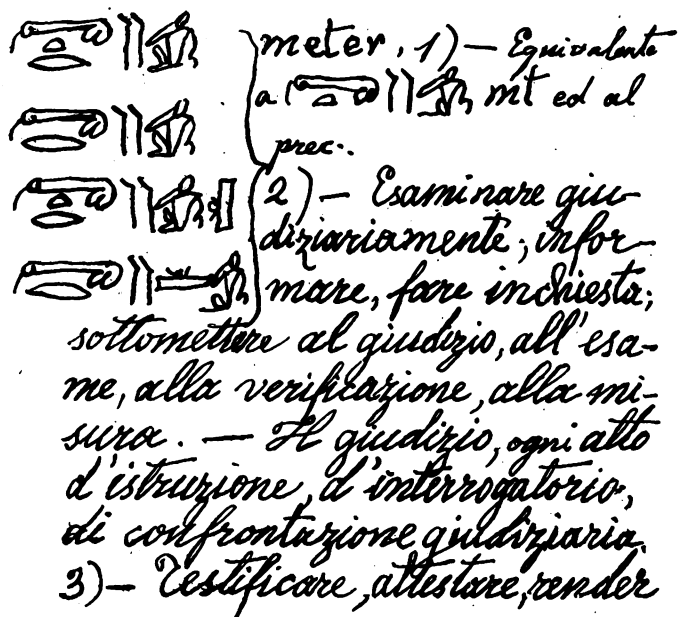 meter, 1) — Equivalente
a mt ed al
prec.
2) — Esaminare giu-
diziariamente; infor-
mare, fare inchiesta;
sottomettere al giudizio, all'esa-
me, alla verificazione, alla mi-
sura. — Il giudizio, ogni atto
d'istruzione, d'interrogatorio,
di confrontazione giudiziaria.
3) — Testificare, attestare, render